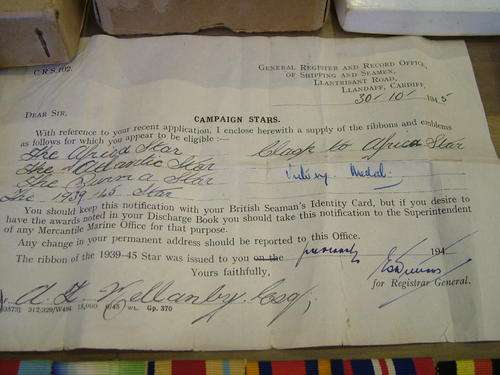 C.R.S. 102.
GENERAL REGISTER AND RECORD OFFICE,
OF SHIPPING AND SEAMEN,
LLANTRISANT ROAD,
LLANDAFF, CARDIFF.
30/10/1945
DEAR SIR,
CAMPAIGN STARS.
With reference to your recent application, I enclose herewith a supply of the ribbons and emblems
as follows for which you appear to be eligible :—
The Africa Star Clasp to Africa Star
The Atlantic Star Victory Medal.
The Burma Star
The 1939-45 Star
You should keep this notification with your British Seaman's Identity Card, but if you desire to
have the awards noted in your Discharge Book you should take this notification to the Superintendent
of any Mercantile Marine Office for that purpose.
Any change in your permanent address should be reported to this Office.
The ribbon of the 1939-45 Star was issued to you on the previously 194
Yours faithfully,
for Registrar General.
Mellanby. Esq,
Gp. 370